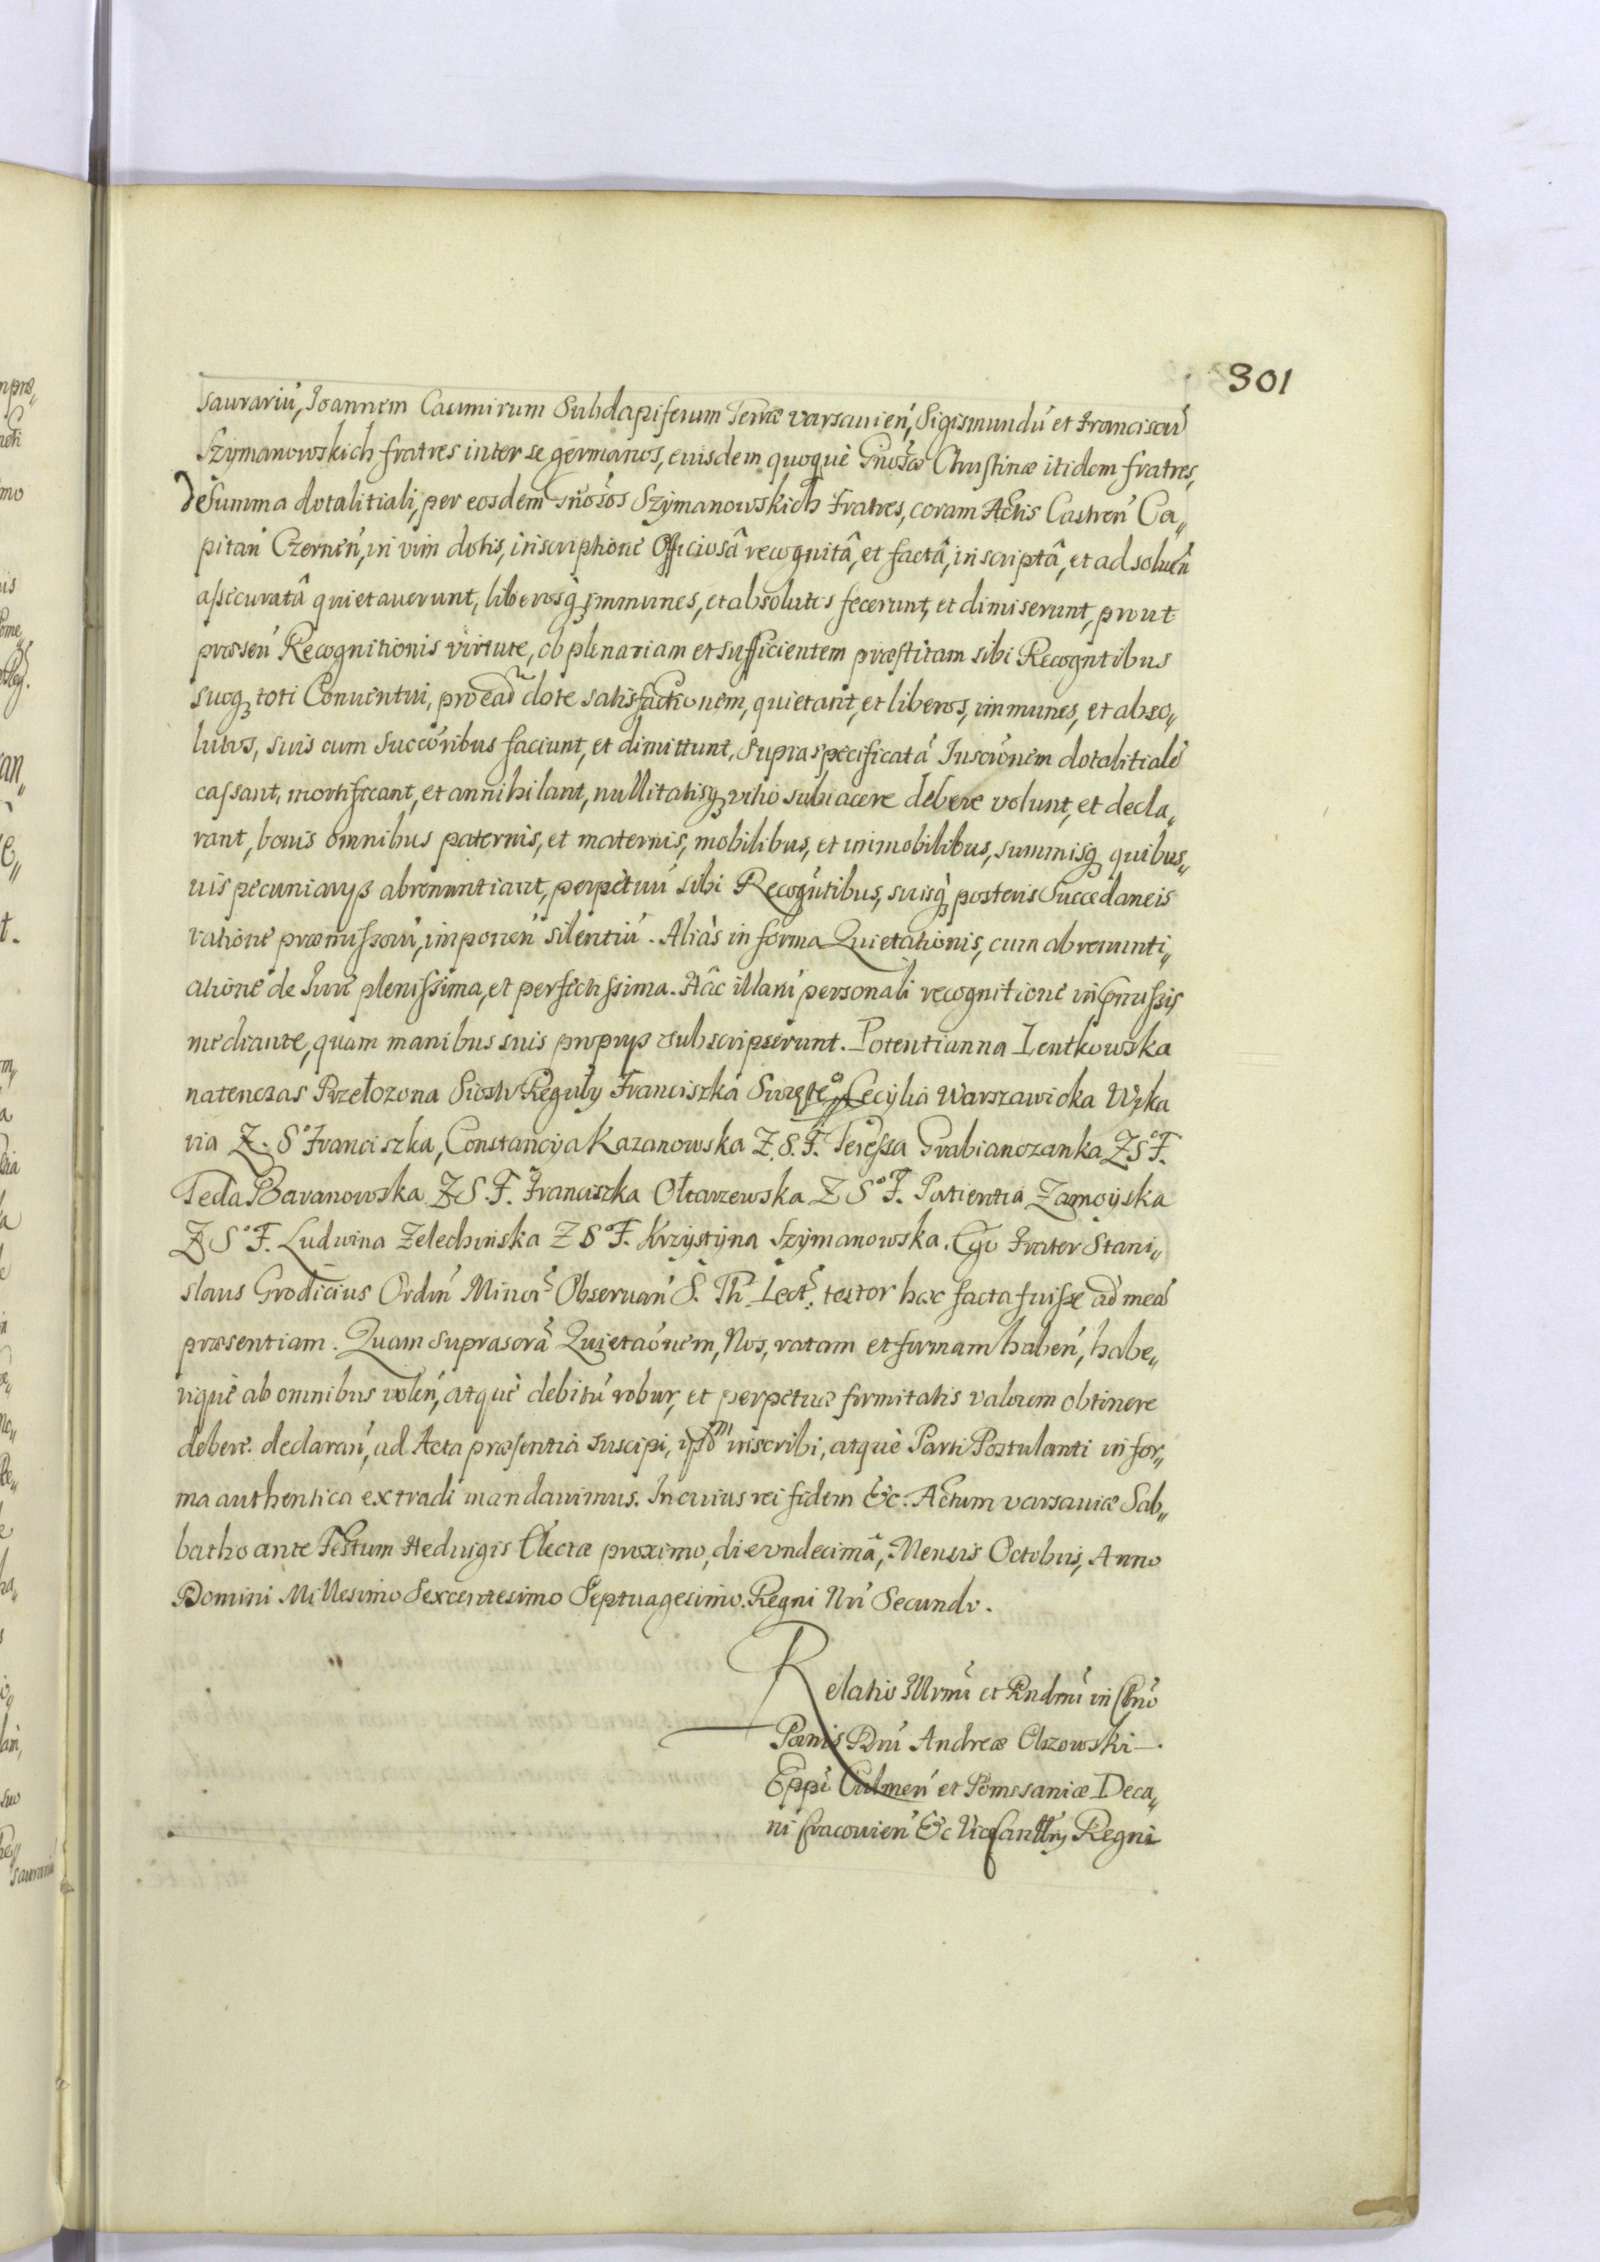 301
saurariú, Joannem Casimirum Subdapiferum Terræ varsauień, Sigismundú et Franciscú
Szÿmanowskich fratres inter se germanos, euisdem quoquè Gnosæ Christinæ itidem fratres,
de Summa dotalitiali, per eosdem Gñosos Szÿmanowskich Fratres, coram Actis Castreń Ca„
pitań Czerneń, in vim dotis, inscriptione Officiosâ recognitâ, et factâ, inscriptâ, et ad solueń
assicuratâ quietauerunt, liberosq immunes, et absolutos fecerunt, et dimiserunt, prout
præseń Recognitionis virtute, ob plenariam et sufficientem præstitam sibi Recogntibus
suoq toti Conuentui, pro ead dote satisfactionem, quietant, et liberos, immunes, et abso„
lutos, suis cum Succoribus faciunt, et dimittunt, Supraspecificatá Inscrónem dotalitialé
cassant, mortificant, et annihilant, nullitatisq vitio subiacere debere volunt, et decla„
rant, bonis omnibus paternis, et maternis, mobilibus, et immobilibus, summisq quibus„
uis pecuniarys abrenuntiant, perpetuú sibi Recogntibus, suisq posteris Succedaneis
ratione præmissorú, imponeń silentiú. Aliàs in forma Quietationis, cum abrenunti„
atione de Jure plenissima, et perfectissima. Hâc illarú personali recognitione in pmissis
mediante, quam manibus suis proprys subscripserunt. Potentianna Lentkowska
natenczas Przełozona Siostr Reguły Franciszka Swięte° Cecylia Warszawicka Wika
ria Z. S° Franciszka, Constancÿa Kazanowska Z. S. F. Teressa Grabianczanka Z S° F.
Tecla Baranowska Z S. F. Franciszka Ołtarzewska Z S° F. Patientia Zamoÿska
Z S° F. Ludwina Zelechinska Z S° F. Krzÿstÿna Szÿmanowska. Ego Frater Stani„
slaus Grodicius Ordiń Minor Obseruań S. Th. Lect. testor hæc facta fuisse ad meá
præsentiam. Quam suprascrâ Quietaónem, Nos, ratam et firmam habeń, habe„
riquè ab omnibus voleń, atquè debitú robur, et perpetuæ firmitatis valorem obtinere
debere declarań, ad Acta præsentia suscipi, ipsm inscribi, atquè Parti Postulanti in for„
ma authentica extradi mandauimus. In cuius rei fidem &c. Actum varsauiæ Sab„
batho ante Festum Heduigis Electæ proximo, die vndecimâ, Mensis Octobris, Anno
Domini Millesimo Sexcentesimo Septuagesimo. Regni Nri Secundo.
Relatio Illrmi et Rndmi in Chrõ
Patris Dni Andreæ Olszowski
Eppi Culmeń et Pomesaniæ Deca„
ni Cracouień &c Vicecancllry Regni